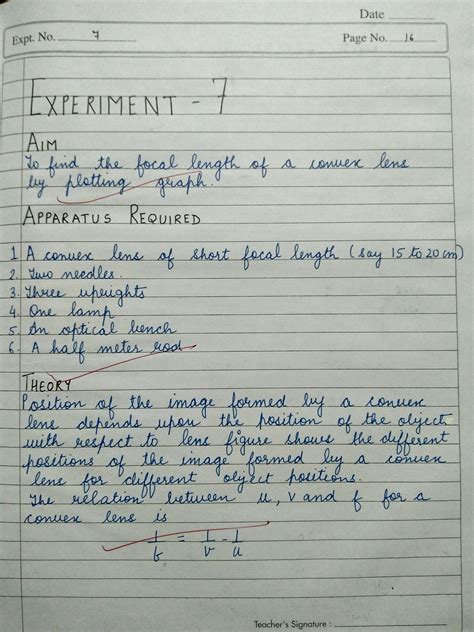 Date
Expt. No. 7
Page No. 16
EXPERIMENT - 7
AIM
To find the focal length of a convex lens
by plotting graph.
APPARATUS REQUIRED
1 A convex lens of short focal length (say 15 to 20 cm)
2. Two needles.
3. Three uprights
4. One lamp
5. An optical bench
6. A half meter rod
THEORY
Position of the image formed by a convex
lens depends upon the position of the object
with respect to lens figure shows the different
positions of the image formed by a convex
lens for different object positions.
The relation between u, v and f for a
convex lens is
1/f = 1/v - 1/u
Teacher's Signature :